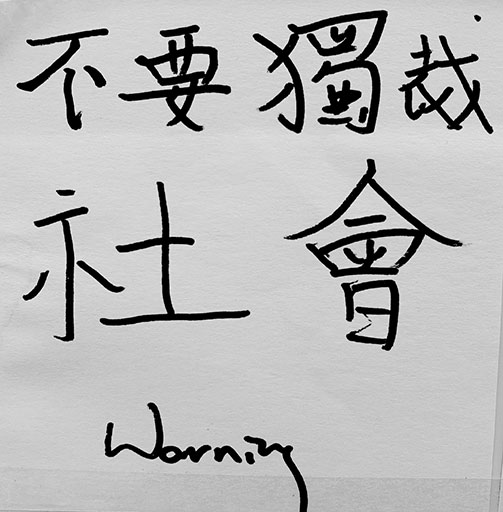 不要獨裁
社會
Warning